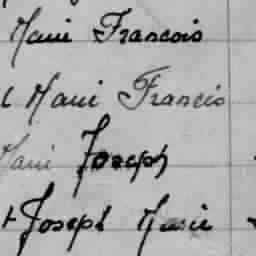 Marie Francois
Marie Francis
Marie Joseph
Joseph Marie